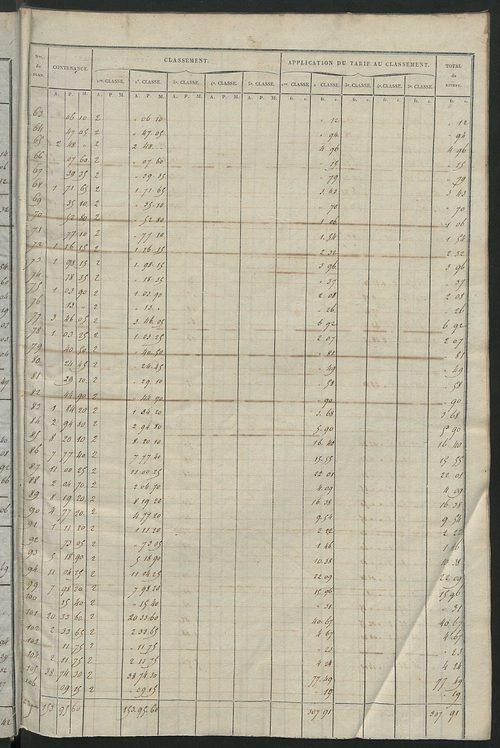 Nos. de PLAN. CONTENANCE. CLASSEMENT. APPLICATION DU TARIF AU CLASSEMENT. TOTAL du REVENU.
1re CLASSE. 2e CLASSE. 3e CLASSE. 4e CLASSE. 5e CLASSE. 1re CLASSE. 2e CLASSE. 3e CLASSE. 4e CLASSE. 5e CLASSE.
A. P. M. A. P. M. A. P. M. A. P. M. A. P. M. A. P. M. fr. c. fr. c. fr. c. fr. c. fr. c. fr. c.
63 " 06 10 2 " 06 10 " 12 " 12
64 " 47 05 2 " 47 05 " 94 " 94
65 2 48 " 2 2 48 " 4 96 4 96
66 " 07 60 2 " 07 60 " 15 " 15
67 " 39 35 2 " 39 35 " 79 " 79
68 1 71 65 2 1 71 65 3 43 3 43
69 " 35 10 2 " 35 10 " 70 " 70
70 " 52 80 2 " 52 80 1 06 1 06
71 " 77 10 2 " 77 10 1 54 1 54
72 1 16 15 2 1 16 15 2 32 2 32
73 1 98 15 2 1 98 15 3 96 3 96
74 " 18 35 2 " 18 35 " 37 " 37
75 1 03 90 2 1 03 90 2 08 2 08
76 " 13 " 2 " 13 " " 26 " 26
77 3 46 05 2 3 46 05 6 92 6 92
78 1 03 25 2 1 03 25 2 07 2 07
79 " 40 50 2 " 40 50 " 81 " 81
80 " 24 45 2 " 24 45 " 49 " 49
81 " 29 10 2 " 29 10 " 58 " 58
82 " 44 90 2 " 44 90 " 90 " 90
83 1 84 20 2 1 84 20 3 68 3 68
84 2 94 80 2 2 94 80 5 90 5 90
85 8 20 10 2 8 20 10 16 40 16 40
86 7 77 40 2 7 77 40 15 55 15 55
87 11 00 25 2 11 00 25 22 01 22 01
88 2 04 70 2 2 04 70 4 09 4 09
89 8 19 20 2 8 19 20 16 38 16 38
90 4 77 20 2 4 77 20 9 54 9 54
91 1 11 20 2 1 11 20 2 22 2 22
92 " 73 05 2 " 73 05 1 46 1 46
93 5 18 90 2 5 18 90 10 38 10 38
94 11 04 25 2 11 04 25 22 09 22 09
99 7 98 20 2 7 98 20 15 96 15 96
100 " 15 40 2 " 15 40 " 31 " 31
101 20 33 60 2 20 33 60 40 67 40 67
102 2 33 65 2 2 33 65 4 67 4 67
103 " 11 75 2 " 11 75 " 23 " 23
104 2 11 75 2 2 11 75 4 24 4 24
105 38 74 30 2 38 74 30 77 49 77 49
106 " 09 15 2 " 09 15 " 19 " 19
153 95 60 153 95 60 307 91 307 91